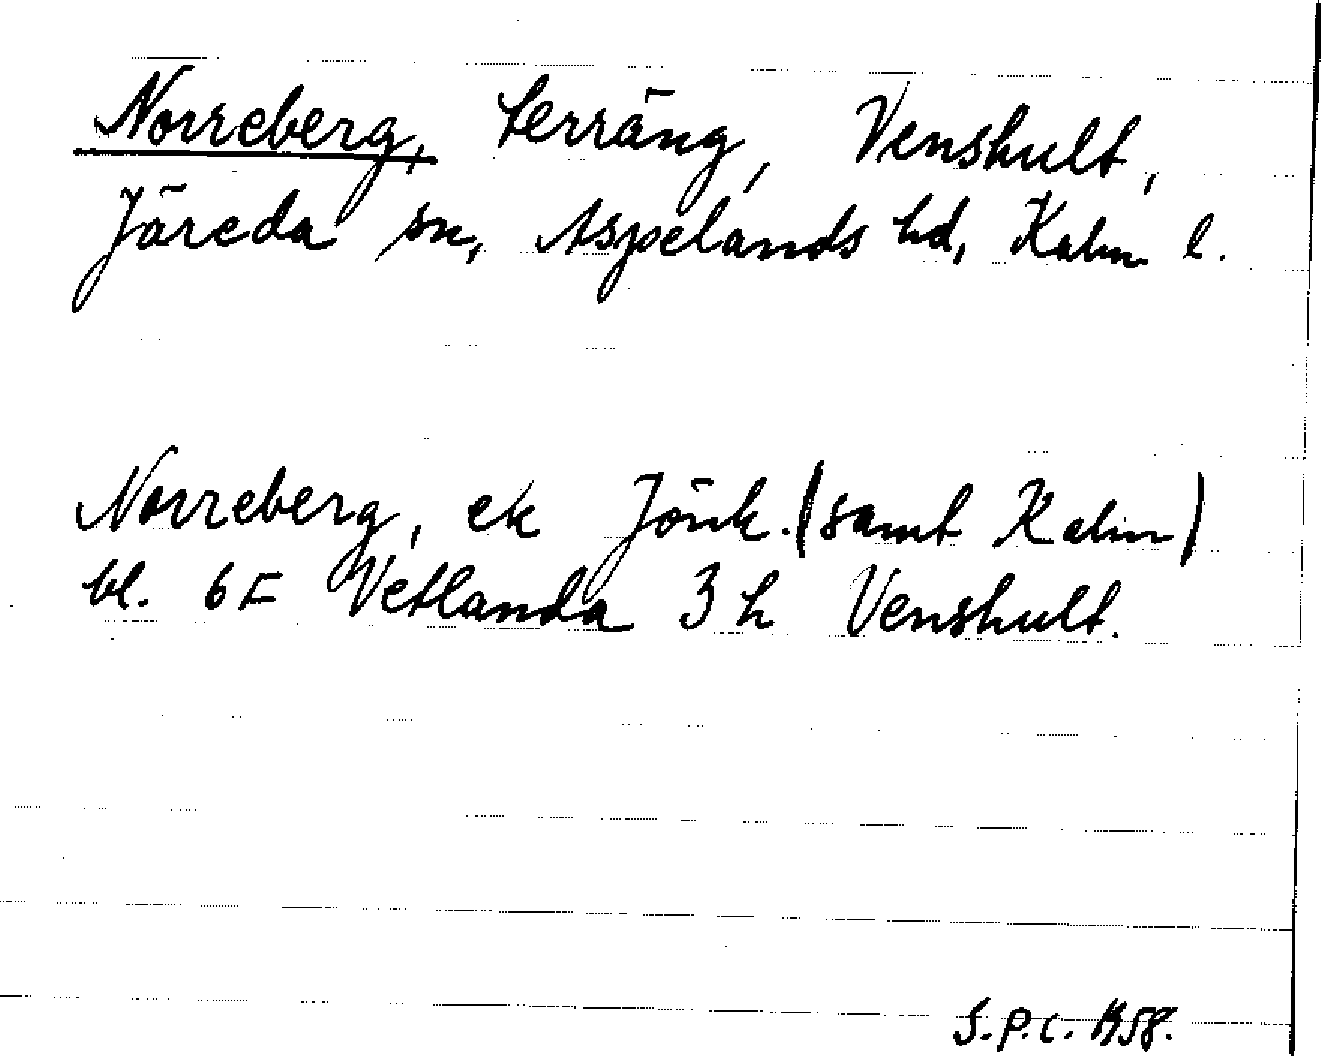 Norreberg, terräng, Venshult,
Järeda sn, Aspelands hd, Kalm l.
Norreberg, ek Jönk. (samt Kalm)
bl. 6F Vetlanda 3h Venshult.
S.P.C. 1958.